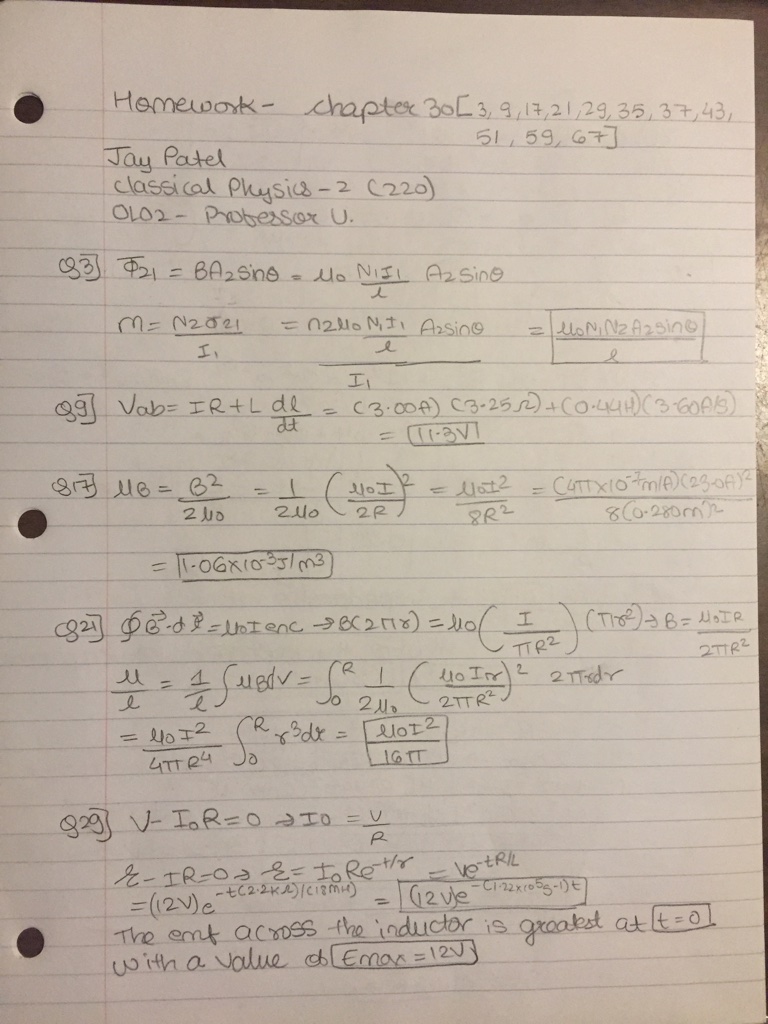 Homework - chapter 30 [3, 9, 17, 21, 29, 35, 37, 43,
51, 59, 67]
Jay Patel
Classical Physics - 2 (220)
OL02 - Professor U.
Q3] Φ21 = BA2 sinθ = μ0 N1I1/l A2 sinθ
m = N2Φ21/I1 = (n2μ0 N1I1/l A2sinθ)/I1 = μ0N1N2A2sinθ/l
Q9] Vab = IR + L dI/dt = (3.00A)(3.25Ω) + (0.44H)(3.60A/S)
= 11.3V
Q17] μB = B²/2μ0 = 1/2μ0 (μ0I/2R)² = μ0I²/8R² = (4π×10⁻⁷m/A)(23.0A)²/8(0.280m)²
= 1.06×10⁻³J/m3
Q21] ∮B⃗·dl⃗ = μ0Ienc → B(2πr) = μ0 (I/πR²) (πr²) → B = μ0IR/2πR²
μ/l = 1/l ∫μBdV = ∫₀ᴿ 1/2μ0 (μ0Ir/2πR²)² 2πrdr
= μ0I²/4πR⁴ ∫₀ᴿ r³dr = μ0I²/16π
Q29] V - I0R = 0 → I0 = V/R
ξ - IR = 0 → ξ = I0Re^(-t/τ) = Ve^(-tR/L)
= (12V)e^(-t(2.2KΩ)/(18mH)) = (12V)e^(-(1.22×10⁵s-1)t)
The emf across the inductor is greatest at t = 0
with a value of Emax = 12V